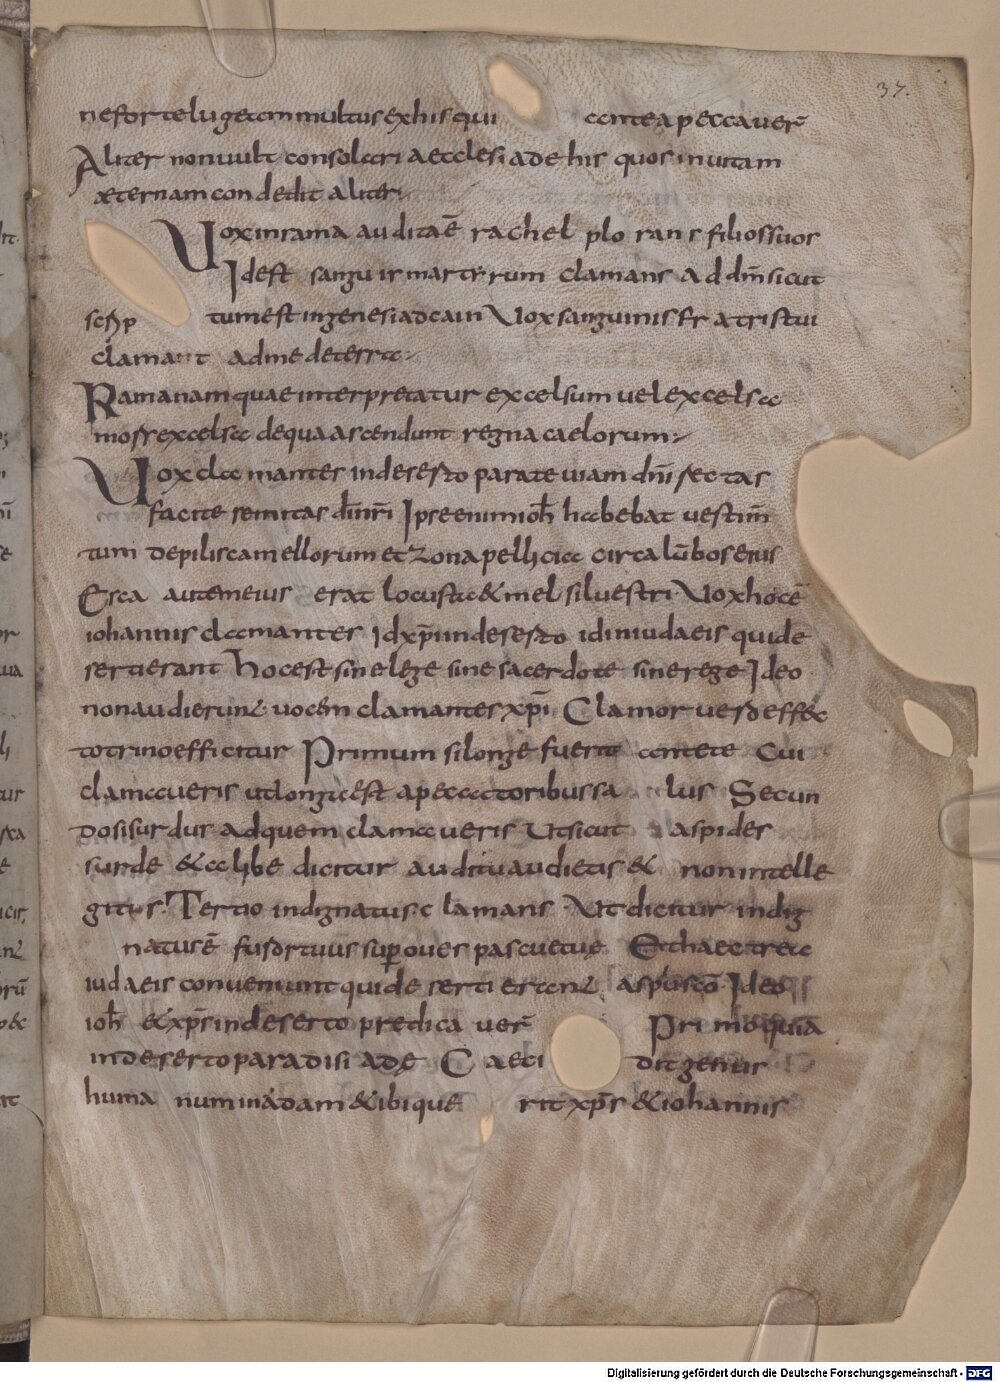 37.
neforte lugeam multus ex his qui ante apeccauer̄
Aliter non uult consolari aecclesia de his quos in uitam
æternam condedit aliter
Uox in rama audita ē rachel plorans filios suos
Id est sanguis martyrum clamans ad dm̄ sicut
scrip tum est in genesi ad cain Uox sanguinis fratris tui
clamant ad me de terra
Ramanam quae interpretatur excelsum uel excelsa
mons excelsa de qua ascendunt regna caelorum
Uox clamantes in deserto parate uiam dn̄i rectas
facite semitas dī nr̄i Ipse enim ioh̄ habebat uestim̄
tum de pilis camellorum et zona pellicia circa lūbos eius
Esca autem eius erat locusta & mel siluestri Uox hoc ē
iohannis clamantes Id xp̄i in deserto id in iudaeis qui de
serti erant Hoc est sine lege sine sacerdote sine rege Ideo
non audierunt uocem clamantes xp̄i Clamor uero effec
to trino efficitur Primum si longe fuerit ante te Cui
clamaueris ut longa est a peccatoribus sa lus Secun
do si surdus ad quem clamaueris Ut sicut aspides
surde & alibe dicitur auditu audietis & non intelle
gitis Tertio indignatus clamans Ut dicitur indig
natus ē furor tuus sup oues pascue tue Et haec tria
iudaeis conueniunt qui deserti erant Ideo
ioh̄ & xp̄s in deserto predica uer̄ Primo quia
in deserto paradisi adę C aeci dit genus
huma num in adam & ibi que rit xp̄s & iohannis
Digitalisierung gefördert durch die Deutsche Forschungsgemeinschaft - DFG